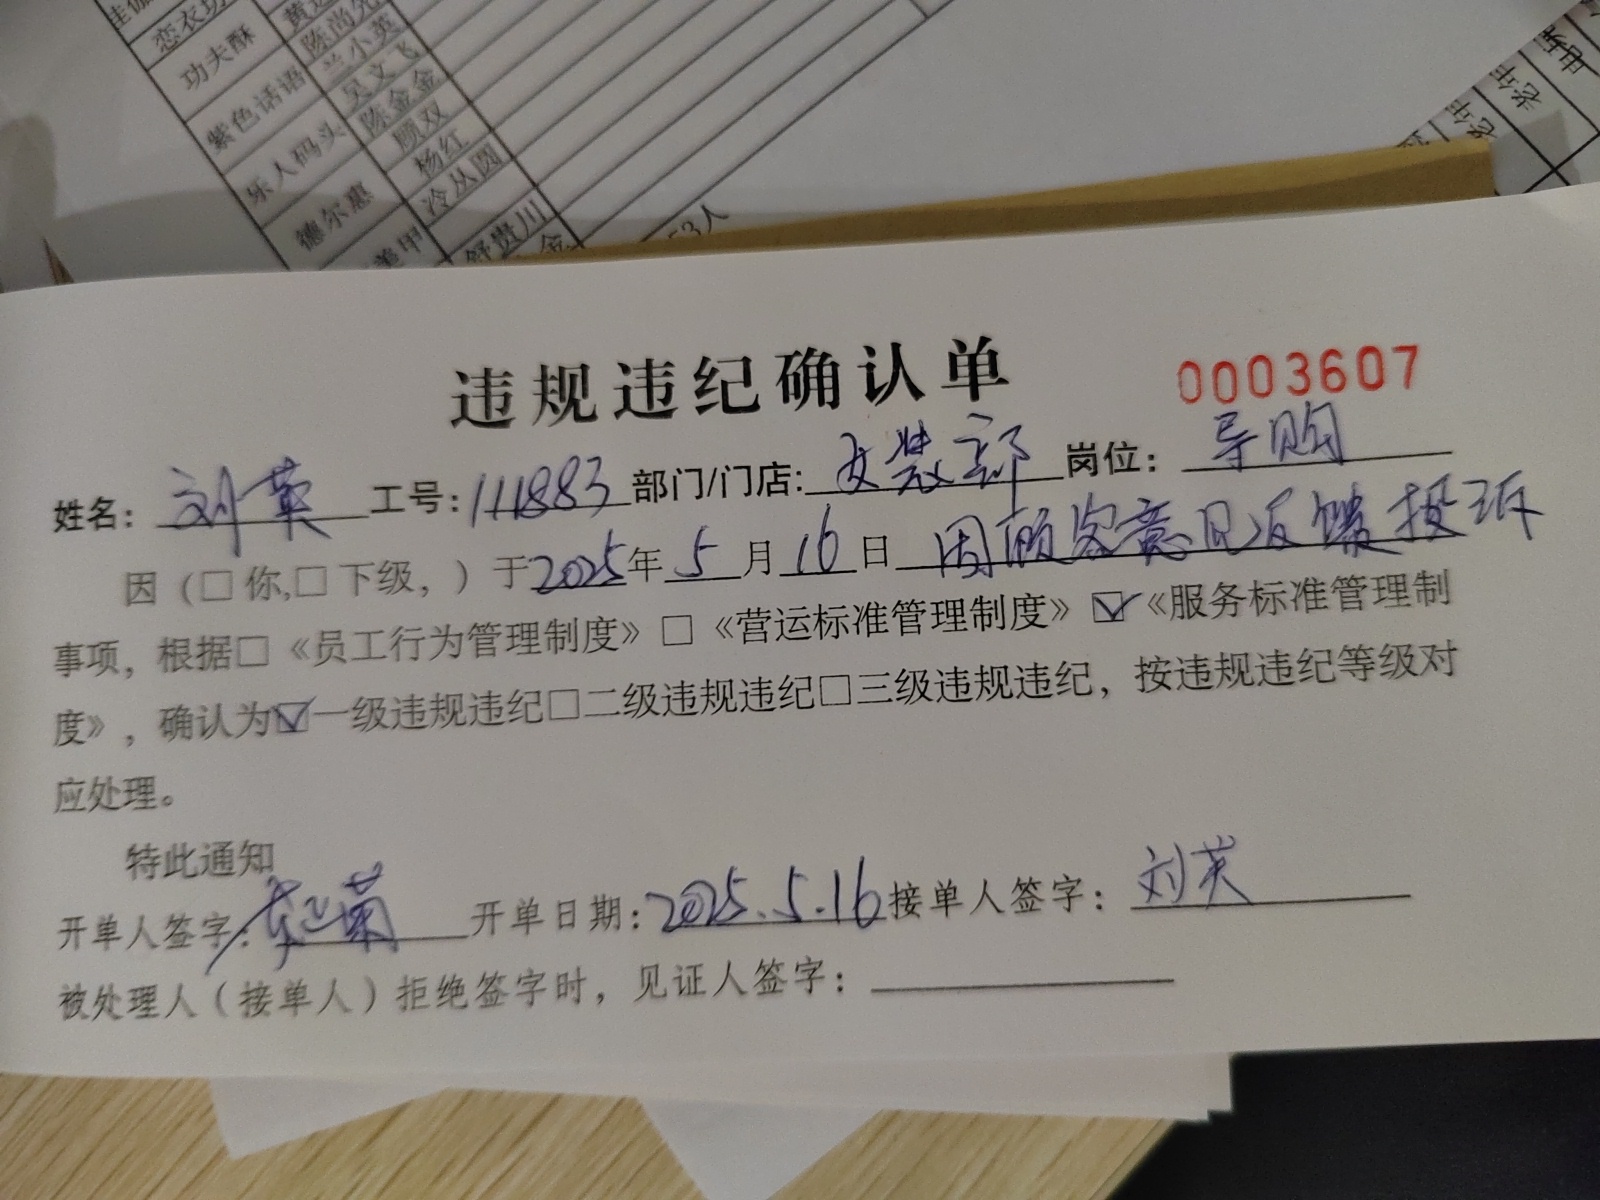 恋衣坊
功夫酥
紫色话语
乐人码头
德尔惠
美甲
陈尚先
兰小英
吴文飞
陈金金
顾双
杨红
冷从圆
舒贵川
金
53人
违规违纪确认单
0003607
姓名：刘英 工号：111883 部门/门店：女装部 岗位：导购
因（□你,□下级，）于2025年5月16日 因顾客意见反馈投诉
事项，根据□《员工行为管理制度》□《营运标准管理制度》☑《服务标准管理制
度》，确认为☑一级违规违纪□二级违规违纪□三级违规违纪，按违规违纪等级对
应处理。
特此通知
开单人签字： 开单日期：2025.5.16 接单人签字：刘英
被处理人（接单人）拒绝签字时，见证人签字：